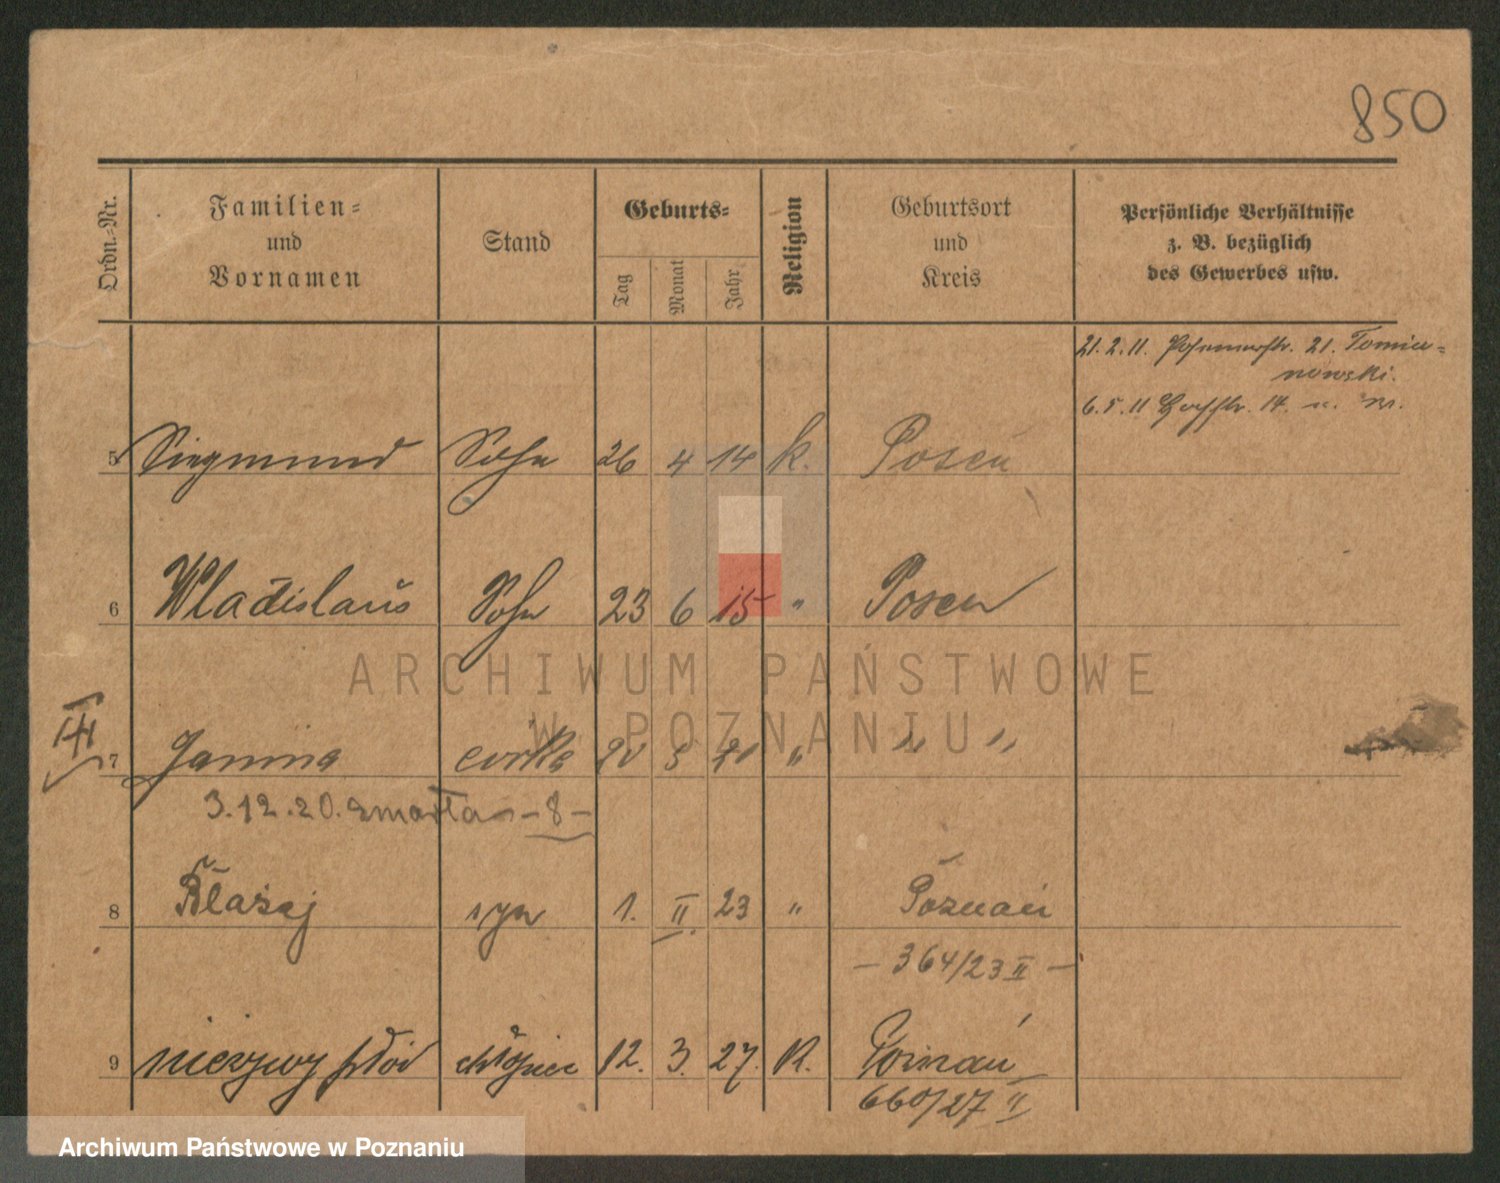 850
Ordn.-Nr.
Familien-
und
Vornamen
Stand
Geburts-
Tag
Monat
Jahr
Religion
Geburtsort
und
Kreis
Persönliche Verhältnisse
z. B. bezüglich
des Gewerbes usw.
21. 2. 11. Posenerstr. 21. Tomia-
nowski.
6. 5. 11 14.
5 Siegmund Sohn 26 4 14 k. Posen
6 Wladislaus Sohn 23 6 15 " Posen
ARCHIWUM PAŃSTWOWE
W POZNANIU
7 Janina córka 20 " " "
3.12.20. zmarła - 8 -
8 Błażej syn 1. II 23 " Poznań
- 364/23 II -
9 nieżywy płód 12. 3. 27. R. Poznań
660/27 II
Archiwum Państwowe w Poznaniu